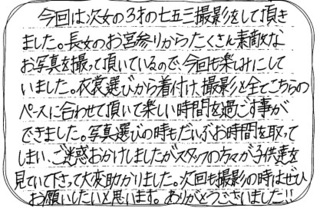 今回は次女の3才の七五三撮影をして頂き
ました。長女のお宮参りからたくさん素敵な
お写真を撮って頂いているので、今回も楽しみにして
いました。衣裳選びから着付け、撮影と全てこちらの
ペースに合わせて頂いて楽しい時間を過ごす事が
できました。写真選びの時もだいぶお時間を取って
しまい、ご迷惑おかけしましたがスタッフの方々が子供達を
見ていて下さって大変助かりました。次回も撮影の時はぜひ
お願いしたいと思います。ありがとうございました!!